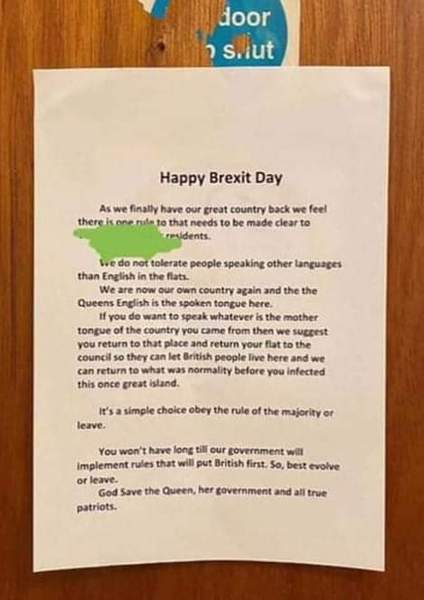 door
shut
Happy Brexit Day
As we finally have our great country back we feel
there is one rule to that needs to be made clear to
residents.
We do not tolerate people speaking other languages
than English in the flats.
We are now our own country again and the the
Queens English is the spoken tongue here.
If you do want to speak whatever is the mother
tongue of the country you came from then we suggest
you return to that place and return your flat to the
council so they can let British people live here and we
can return to what was normality before you infected
this once great island.
It's a simple choice obey the rule of the majority or
leave.
You won't have long till our government will
implement rules that will put British first. So, best evolve
or leave.
God Save the Queen, her government and all true
patriots.